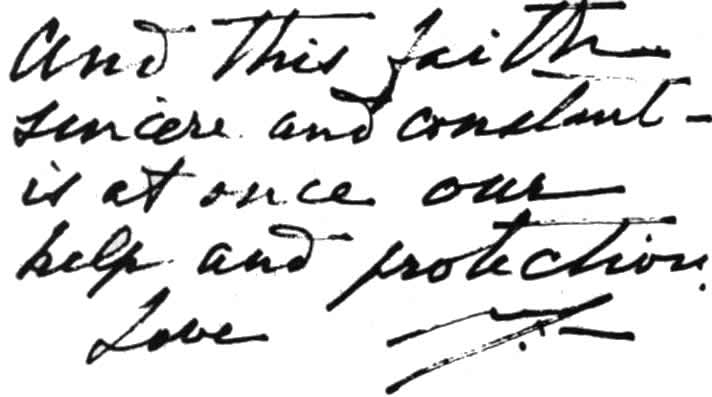 And this faith
sincere and constant -
is at once our
help and protection.
Love